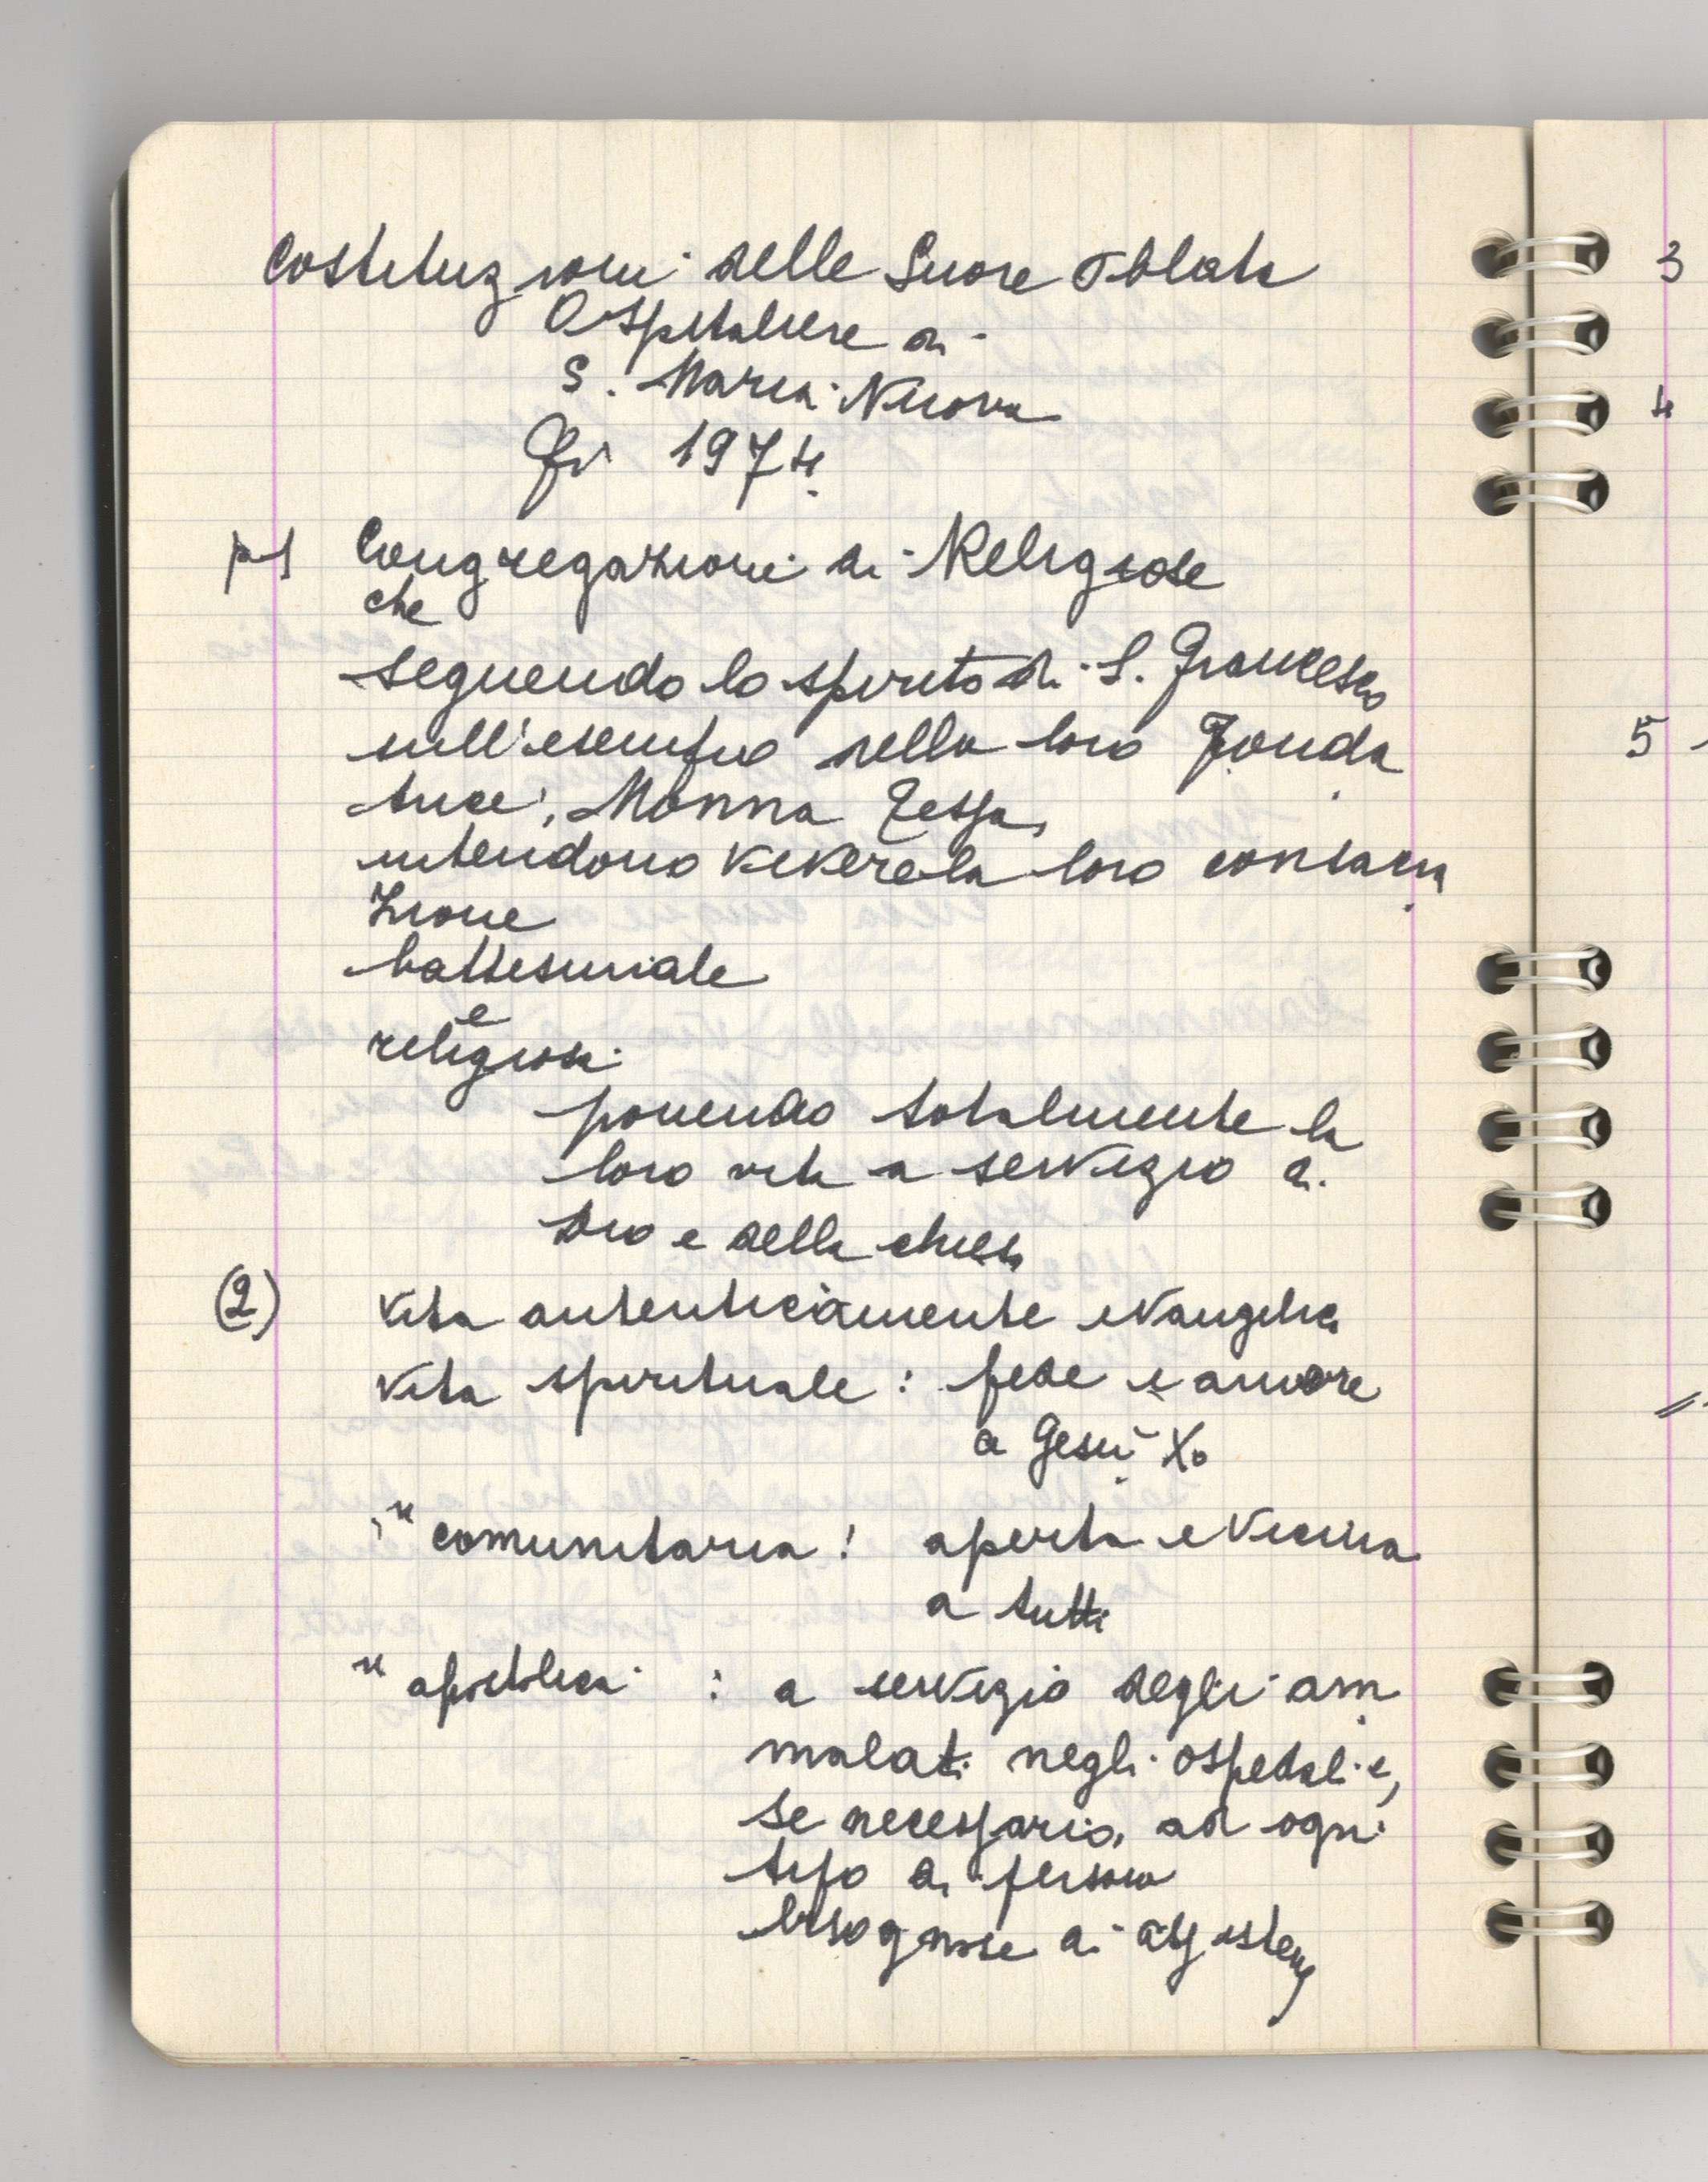 Costituzioni delle Suore Oblate
Ospedaliere di
S. Maria Nuova
Fi 1974
p 1 Congregazioni di Religiose
che
seguendo lo spirito di S. Francesco
sull'esempio della loro Fonda
trice, Monna Tessa,
intendono vivere la loro consacra
zione
battesimale
e
religiosa
ponendo totalmente la
loro vita a servizio di
Dio e della chiesa
(2) Vita autenticamente evangelica
Vita spirituale: fede e amore
a Gesù Xo
" comunitaria: aperta e vicina
a tutti
" apostolica : a servizio degli am
malati negli ospedali e,
se necessario, ad ogni
tipo di persone
bisognose di assistenz
3
4
5